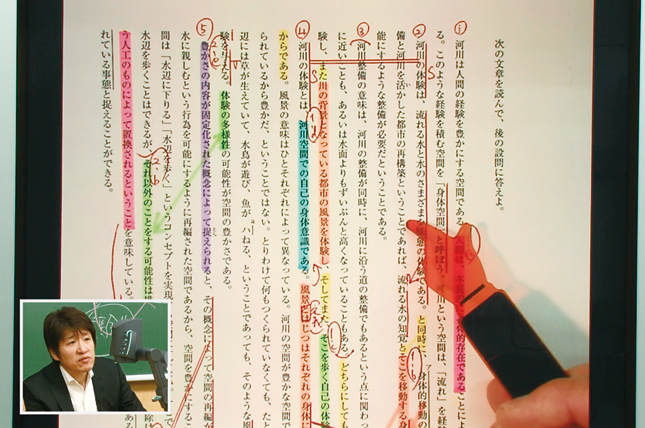 次の文章を読んで、後の設問に答えよ。
① 河川は人間の経験を豊かにする空間である。人間は、本質的に身体的存在であることによ
る。このような経験を積む空間を「身体空間」と呼ぼう。河川という空間は、「流れ」を経験
② 河川の体験は、流れる水と水のさまざまな様態の体験である。と同時に、身体的移動の
備と河川を活かした都市の再構築ということであれば、流れる水の知覚とそこを移動する身
能にするような整備が必要だということである。
③ 河川整備の意味は、河川の整備が同時に、河川に沿う道の整備でもあるという点に関わっ
に近いことも、あるいは水面よりもずいぶんと高くなっていることもある。どちらにしても
験し、また川の背景となっている都市の風景を体験し、そしてまた、そこを歩く自己の体験
④ 河川の体験とは、河川空間での自己の身体意識である。風景とはじつはそれぞれの身体に
からである。風景の意味はひとそれぞれによって異なっている。河川の空間が豊かな空間で
られているから豊かだ、ということではない。とりわけて何もつくられていなくても、たと
辺には草が生えていて、水鳥が遊び、魚がハねる、ということであっても、そのような風
験を引る。体験の多様性の可能性が空間の豊かさである。
⑤ 豊かさの内容が固定化された概念によって捉えられると、その概念によって空間の再編が
水に親しむという行為を可能にするように再編された空間であるから、空間を豊かにする
間は「水辺に下りる」「水辺を歩く」というコンセプトを実現
水辺を歩くことはできるが、それ以外のことをする可能性は排
う人工のものによって置換されるということを意味している。
れている事態と捉えることができる。